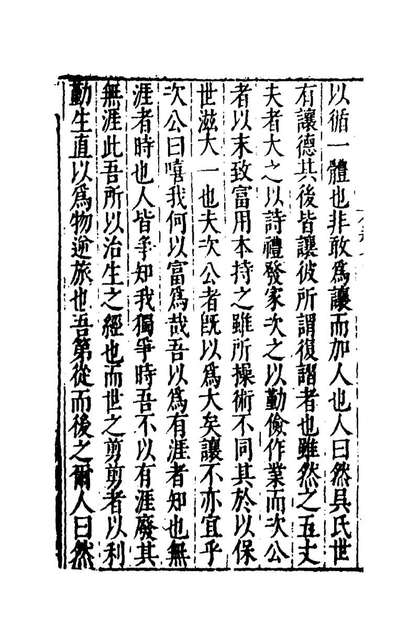 以循一體也非敢爲讓而加人也人曰然具氏世
有讓德其後皆讓彼所謂復謂者也雖然之五丈
夫者大之以詩禮發家次之以勤儉作業而次公
者以末致富用本持之雖所操術不同其於以保
世滋大一也夫次公者旣以爲大矣讓不亦宜乎
次公曰嘻我何以富爲哉吾以爲有涯者知也無
涯者時也人皆爭知我獨爭時吾不以有涯廢其
無涯此吾所以治生之經也而世之剪剪者以利
勤生直以爲物逆旅也吾第從而後之爾人曰然